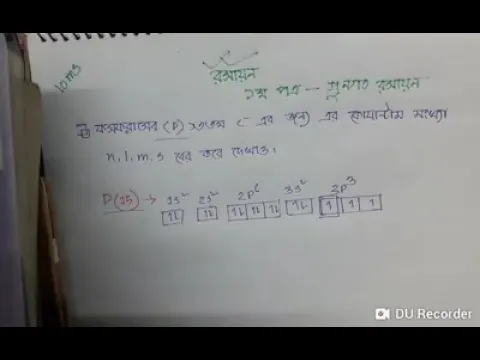 10 ms
রসায়ন
১ম পত্র — গুনগত রসায়ন
ফসফরাসের (P) ১৩তম e⁻ এর জন্য এর কোয়ান্টাম সংখ্যা
n, l, m, s বের করে দেখাও।
P(15) → 1s² 2s² 2p⁶ 3s² 2p³
↑↓ ↑↓ ↑↓ ↑↓ ↑↓ ↑↓ ↑ ↑ ↑
DU Recorder